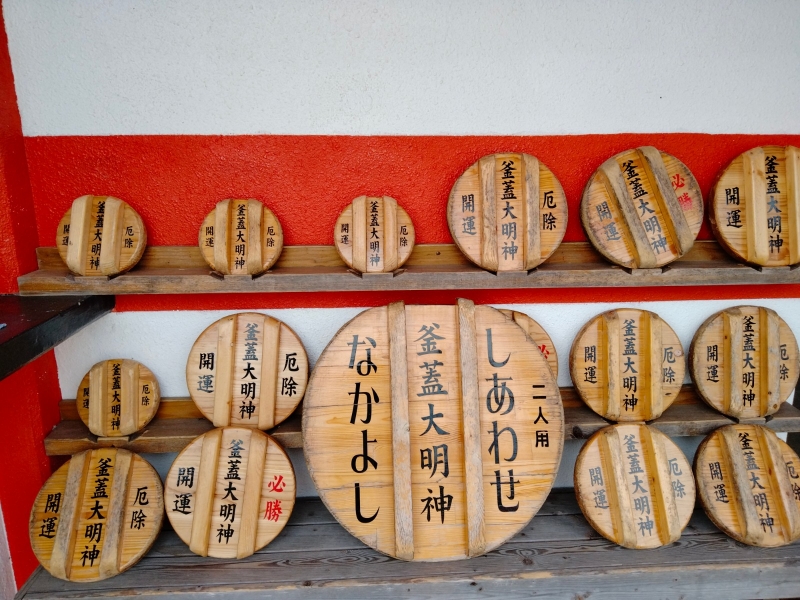 厄除
釜蓋大明神
開運
厄除
釜蓋大明神
開運
厄除
釜蓋大明神
開運
厄除
釜蓋大明神
開運
必勝
釜蓋大明神
開運
釜蓋大明神
開運
厄除
釜蓋大明神
開運
厄除
釜蓋大明神
開運
二人用
しあわせ
釜蓋大明神
なかよし
厄除
釜蓋大明神
開運
厄除
釜蓋大明神
開運
厄除
釜蓋大明神
開運
必勝
釜蓋大明神
開運
厄除
釜蓋大明神
開運
厄除
釜蓋大明神
開運